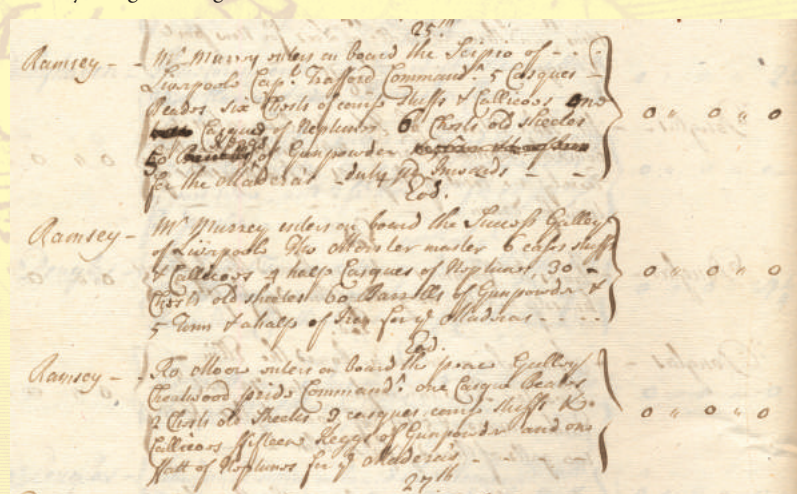 25th
Ramsey - - Mr Murrey enters on board the Scipio of - -
Liverpoole Capt. Trafford Commandr. 5 Casques -
Beades six Chests of comp Stuffs & Callicoes one
Casque of Neptunes 60 Chests old sheetes
50 of Gunpowder
for the Maderas - duty pd Inwards - -
Eod.
Ramsey - Mr Murrey enters on board the Success Galley
of Liverpoole master 6 cases stuffs
& Callicoes 4 halfe Casques of Neptunes, 30 -
Chests old sheetes 60 Barrells of Gunpowder &
5 Tonn & a halfe of Iron for ye Maderas - - -
Eod.
Ramsey - Ro. Moore enters on board the Galley
pride Commandr. one Casque Beades
2 Chests old Sheetes casques comp stuffs &
Callicoes fifteene Keggs of Gunpowder and one
of Neptunes for ye Maderas -
27th
0 " 0 " 0
0 " 0 " 0
0 " 0 " 0